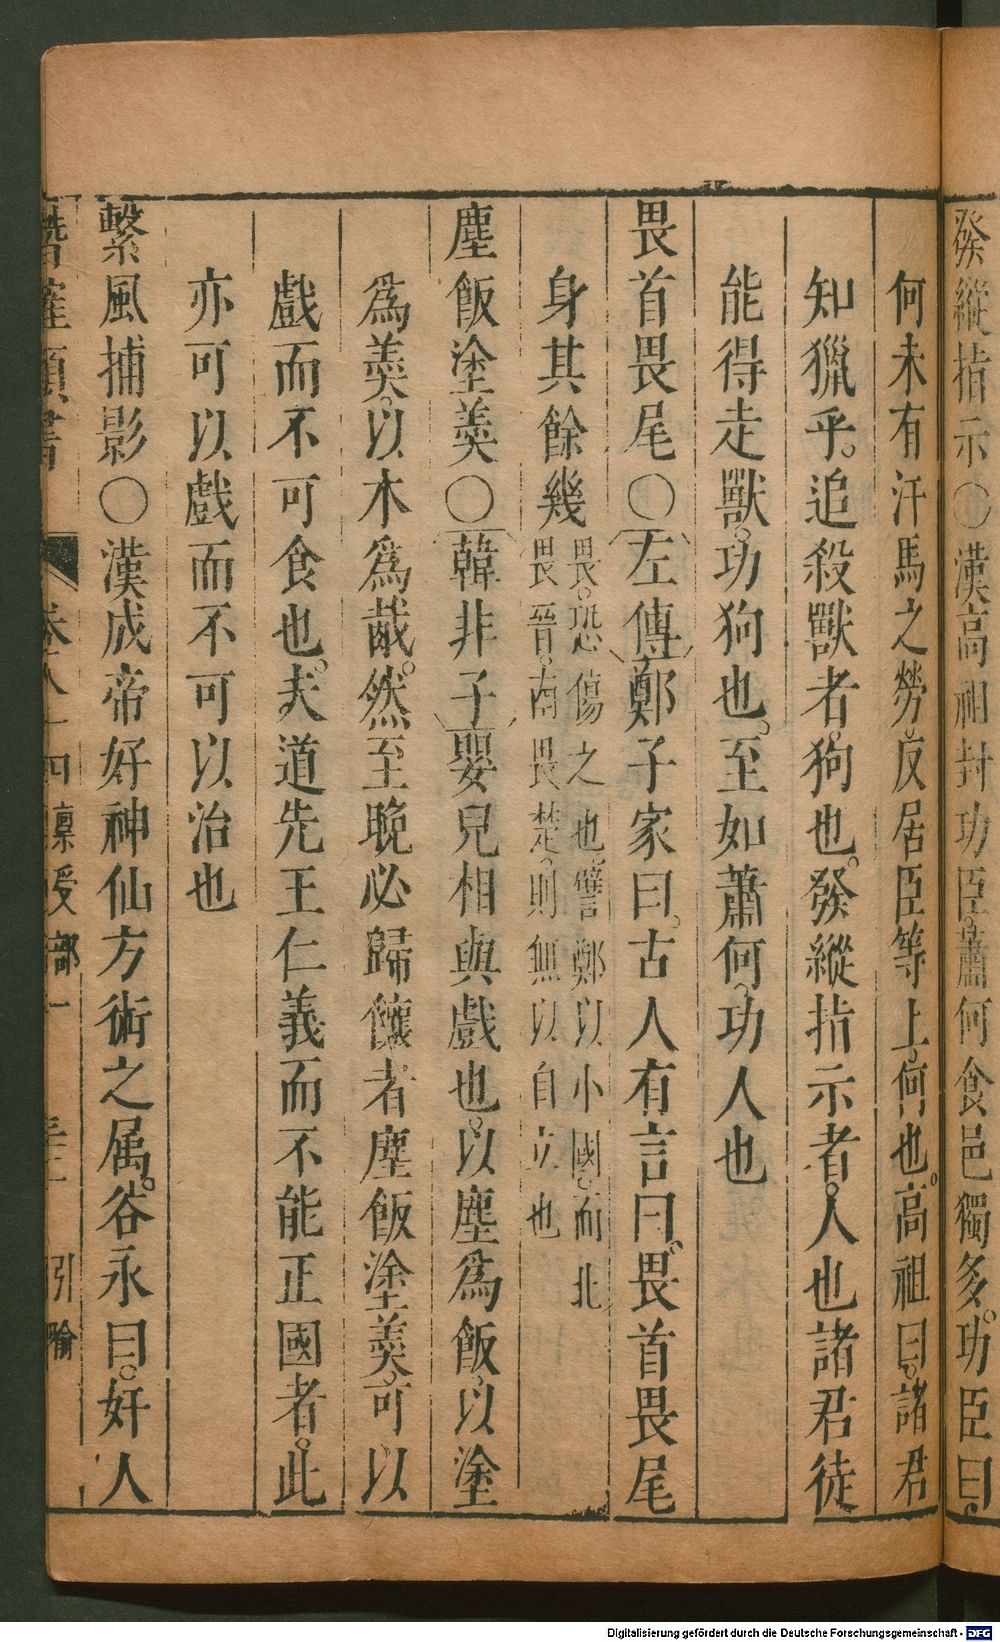 發縱指示○漢高祖封功臣。蕭何食邑獨多。功臣曰。
何未有汗馬之勞。反居臣等上。何也。高祖曰。諸君
知獵乎。追殺獸者。狗也。發縱指示者。人也諸君徒
能得走獸。功狗也。至如蕭何。功人也
畏首畏尾○左傳鄭子家曰。古人有言曰。畏首畏尾
身其餘幾畏。恐傷之也。讐鄭以小國。而北
畏晉。南畏楚。則無以自立也
塵飯塗羮○韓非子嬰兒相與戲也。以塵爲飯。以塗
爲羮。以木爲胾。然至晚必歸饟者塵飯塗羮。可以
戲而不可食也。夫道先王仁義而不能正國者。此
亦可以戲而不可以治也
繫風捕影○漢成帝好神仙方術之属。谷永曰。奸人
類書 卷八十四 部一 引喻
Digitalisierung gefördert durch die Deutsche Forschungsgemeinschaft - DFG